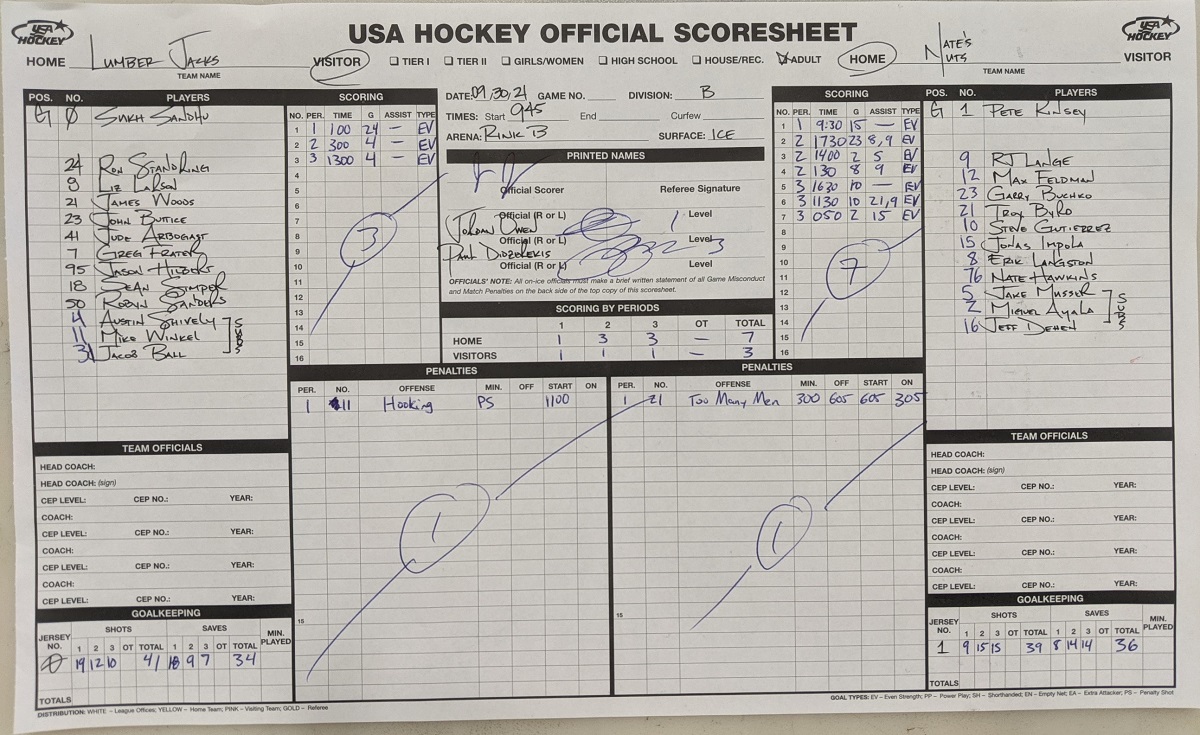 USA HOCKEY OFFICIAL SCORESHEET
USA HOCKEY
USA HOCKEY
HOME LUMBER JACKS VISITOR
TEAM NAME
TIER I TIER II GIRLS/WOMEN HIGH SCHOOL HOUSE/REC. ADULT
HOME NATE'S NUTS VISITOR
TEAM NAME
POS. NO. PLAYERS
G 0 SUKH SANDHU
24 RON STANDRING
8 LIZ LARSON
21 JAMES WOODS
23 JOHN BUTICE
41 JUDE ARBOGAST
7 GREG FRATER
95 JASON HILBERS
18 SEAN STIMPER
50 ROBYN SANDERS
4 AUSTIN SHIVELY
11 MIKE WINKEL
31 JACOB BALL
SUBS
SCORING
NO. PER. TIME G ASSIST TYPE
1 1 100 24 — EV
2 2 300 4 — EV
3 3 1300 4 — EV
4
5
6
7
8
9
10
11
12
13
14
15
16
3
DATE: 09/30/21 GAME NO. DIVISION: B
TIMES: Start 945 End Curfew
ARENA: RINK B SURFACE: ICE
PRINTED NAMES
Official Scorer Referee Signature
Official (R or L) Level
JORDAN OWEN 1
Official (R or L) Level
PAUL DIDZEREKIS 3
Official (R or L) Level
OFFICIALS' NOTE: All on-ice officials must make a brief written statement of all Game Misconduct
and Match Penalties on the back side of the top copy of this scoresheet.
SCORING BY PERIODS
1 2 3 OT TOTAL
HOME 1 3 3 — 7
VISITORS 1 1 1 — 3
SCORING
NO. PER. TIME G ASSIST TYPE
1 1 9:30 15 — EV
2 2 1730 23 8,9 EV
3 2 1400 2 5 EV
4 2 130 8 9 EV
5 3 1630 10 — EV
6 3 1130 10 21,9 EV
7 3 050 2 15 EV
8
9
10
11
12
13
14
15
16
7
POS. NO. PLAYERS
G 1 PETE KINSEY
9 RJ LANGE
12 MAX FELDMAN
23 GARRY BUCHKO
21 TROY BYRO
10 STEVE GUTIERREZ
15 JONAS IMPOLA
8 ERIK LANGSTON
76 NATE HAWKINS
5 JAKE MUSSER
2 MIGUEL AYALA
16 JEFF DEHEN
SUBS
PENALTIES
PER. NO. OFFENSE MIN. OFF START ON
1 11 Hooking PS 1100
15
1
PENALTIES
PER. NO. OFFENSE MIN. OFF START ON
1 21 Too Many Men 300 605 605 305
15
1
TEAM OFFICIALS
HEAD COACH:
HEAD COACH: (sign)
CEP LEVEL: CEP NO.: YEAR:
COACH:
CEP LEVEL: CEP NO.: YEAR:
COACH:
CEP LEVEL: CEP NO.: YEAR:
COACH:
CEP LEVEL: CEP NO.: YEAR:
GOALKEEPING
JERSEY NO. SHOTS SAVES MIN. PLAYED
1 2 3 OT TOTAL 1 2 3 OT TOTAL
0 19 12 10 41 18 9 7 34
TOTALS
TEAM OFFICIALS
HEAD COACH:
HEAD COACH: (sign)
CEP LEVEL: CEP NO.: YEAR:
COACH:
CEP LEVEL: CEP NO.: YEAR:
COACH:
CEP LEVEL: CEP NO.: YEAR:
COACH:
CEP LEVEL: CEP NO.: YEAR:
GOALKEEPING
JERSEY NO. SHOTS SAVES MIN. PLAYED
1 2 3 OT TOTAL 1 2 3 OT TOTAL
1 9 15 15 39 8 14 14 36
TOTALS
DISTRIBUTION: WHITE – League Offices; YELLOW – Home Team; PINK – Visiting Team; GOLD – Referee
GOAL TYPES: EV – Even Strength; PP – Power Play; SH – Shorthanded; EN – Empty Net; EA – Extra Attacker; PS – Penalty Shot